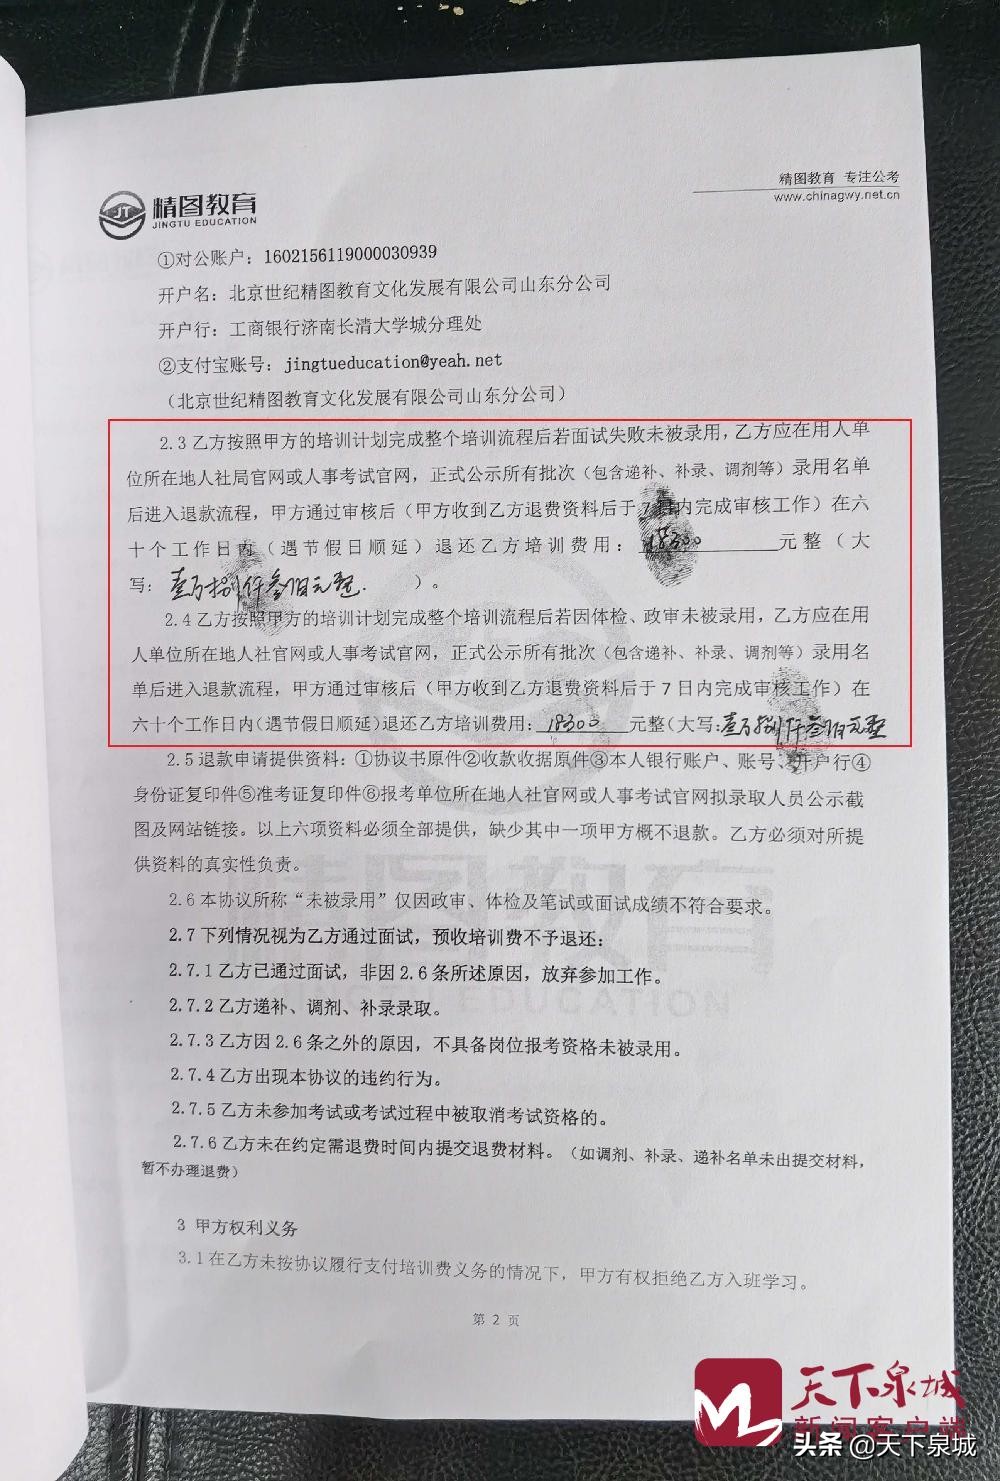 精图教育
JINGTU EDUCATION
精图教育 专注公考
www.chinagwy.net.cn
①对公账户：1602156119000030939
开户名：北京世纪精图教育文化发展有限公司山东分公司
开户行：工商银行济南长清大学城分理处
②支付宝账号：jingtueducation@yeah.net
（北京世纪精图教育文化发展有限公司山东分公司）
2.3 乙方按照甲方的培训计划完成整个培训流程后若面试失败未被录用，乙方应在用人单
位所在地人社局官网或人事考试官网，正式公示所有批次（包含递补、补录、调剂等）录用名单
后进入退款流程，甲方通过审核后（甲方收到乙方退费资料后于 7 日内完成审核工作）在六
十个工作日内（遇节假日顺延）退还乙方培训费用：18300元整（大
写：壹万捌仟叁佰元整.）。
2.4 乙方按照甲方的培训计划完成整个培训流程后若因体检、政审未被录用，乙方应在用
人单位所在地人社官网或人事考试官网，正式公示所有批次（包含递补、补录、调剂等）录用名
单后进入退款流程，甲方通过审核后（甲方收到乙方退费资料后于 7 日内完成审核工作）在
六十个工作日内（遇节假日顺延）退还乙方培训费用：18300元整（大写：壹万捌仟叁佰元整
2.5 退款申请提供资料：①协议书原件②收款收据原件③本人银行账户、账号、开户行④
身份证复印件⑤准考证复印件⑥报考单位所在地人社官网或人事考试官网拟录取人员公示截
图及网站链接。以上六项资料必须全部提供，缺少其中一项甲方概不退款。乙方必须对所提
供资料的真实性负责。
2.6 本协议所称“未被录用”仅因政审、体检及笔试或面试成绩不符合要求。
2.7 下列情况视为乙方通过面试，预收培训费不予退还：
2.7.1 乙方已通过面试，非因 2.6 条所述原因，放弃参加工作。
2.7.2 乙方递补、调剂、补录录取。
2.7.3 乙方因 2.6 条之外的原因，不具备岗位报考资格未被录用。
2.7.4 乙方出现本协议的违约行为。
2.7.5 乙方未参加考试或考试过程中被取消考试资格的。
2.7.6 乙方未在约定需退费时间内提交退费材料。（如调剂、补录、递补名单未出提交材料，
暂不办理退费）
3 甲方权利义务
3.1 在乙方未按协议履行支付培训费义务的情况下，甲方有权拒绝乙方入班学习。
第 2 页
精图教育
JINGTU EDUCATION
天下泉城
新闻客户端
头条 @天下泉城